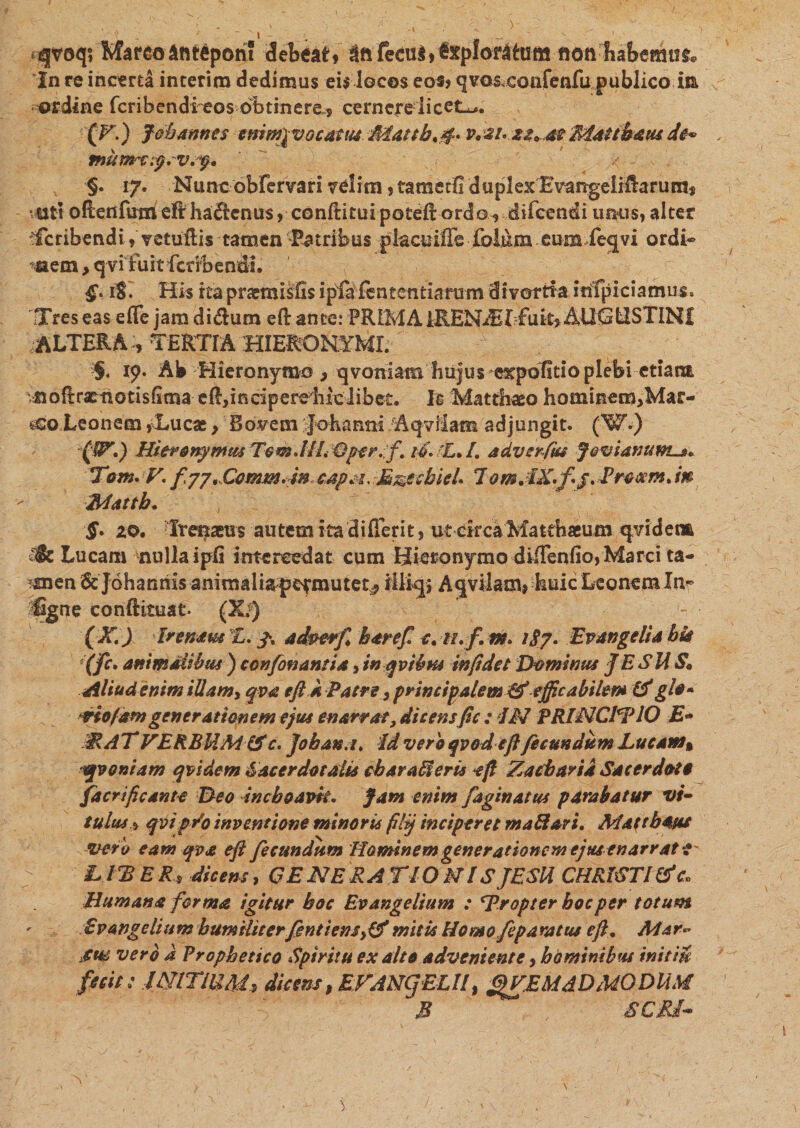 qvoq; Marco anteponi debeat, an secus, exploratum non habemus.
In re incerta interim dedimus eis locos eos, qvos consensu publico in
ordine scribendi eos obtinere, cernere licet.
(V.) Johannes enim vocatus Matth. 4. v. 21. 22. at Matthæus de-
mum c. 9. v. 9.
§. 17. Nunc observari velim, tametsi duplex Evangelistarum,
uti ostensum est hactenus, constitui potest ordo, discendi unus, alter
scribendi, vetustis tamen Patribus placuisse solum eum seqvi ordi-
nem, qvi fuit scribendi.
§. 18. His ita præmissis ipsa sententiarum divortia inspiciamus.
Tres eas esse jam dictum est ante: PRIMA IRENÆI fuit, AUGUSTINI
ALTERA, TERTIA HIERONYMI.
§. 19. Ab Hieronymo, qvoniam hujus expositio plebi etiam
nostræ notissima est, incipere hic libet. Is Matthæo hominem, Mar-
co Leonem, Lucæ, Bovem Johanni Aqvilam adjungit. (W.)
(W.) Hieronymus Tom. III. Oper. f. 16. L. I. adversus Jovianum.
Tom. V. f. 77. Comm. in cap. 1. Ezechiel. Tom. IX. f. 5. Proœm. in
Matth.
§. 20. Irenæus autem ita disserit, ut circa Matthæum qvidem
& Lucam nulla ipsi intercedat cum Hieronymo dissensio, Marci ta-
men & Johannis animalia permutet, illiq; Aqvilam, huic Leonem In-
signe constituat. (X.)
(X.) Irenæus L. 3. advers. hæres. c. 11. f. m. 187. Evangelia his
(sc. animalibus) consonantia, in qvibus insidet Dominus JESUS.
Aliud enim illam, qvæ est à Patre, principalem & efficabilem & glo-
riosam generationem ejus enarrat, dicens sic: IN PRINCIPIO E-
RAT VERBUM &c. Johan. 1. Id vero qvod est secundum Lucam,
qvoniam qvidem Sacerdotalis characteris est Zacharia Sacerdote
sacrificante Deo inchoavit. Jam enim saginatus parabatur vi-
tulus, qvi pro inventione minoris filij inciperet mactari. Matthæus
vero eam qvæ est secundum Hominem generationem ejus enarrat:
LIBER, dicens, GENERATIONIS JESU CHRISTI &c.
Humana forma igitur hoc Evangelium: Propter hoc per totum
Evangelium humiliter sentiens, & mitis Homo separatus est. Mar-
cus vero à Prophetico Spiritu ex alto adveniente, hominibus initiū
fecit: INITIUM, dicens, EVANGELII, QVEMADMODUM
B SCRI-